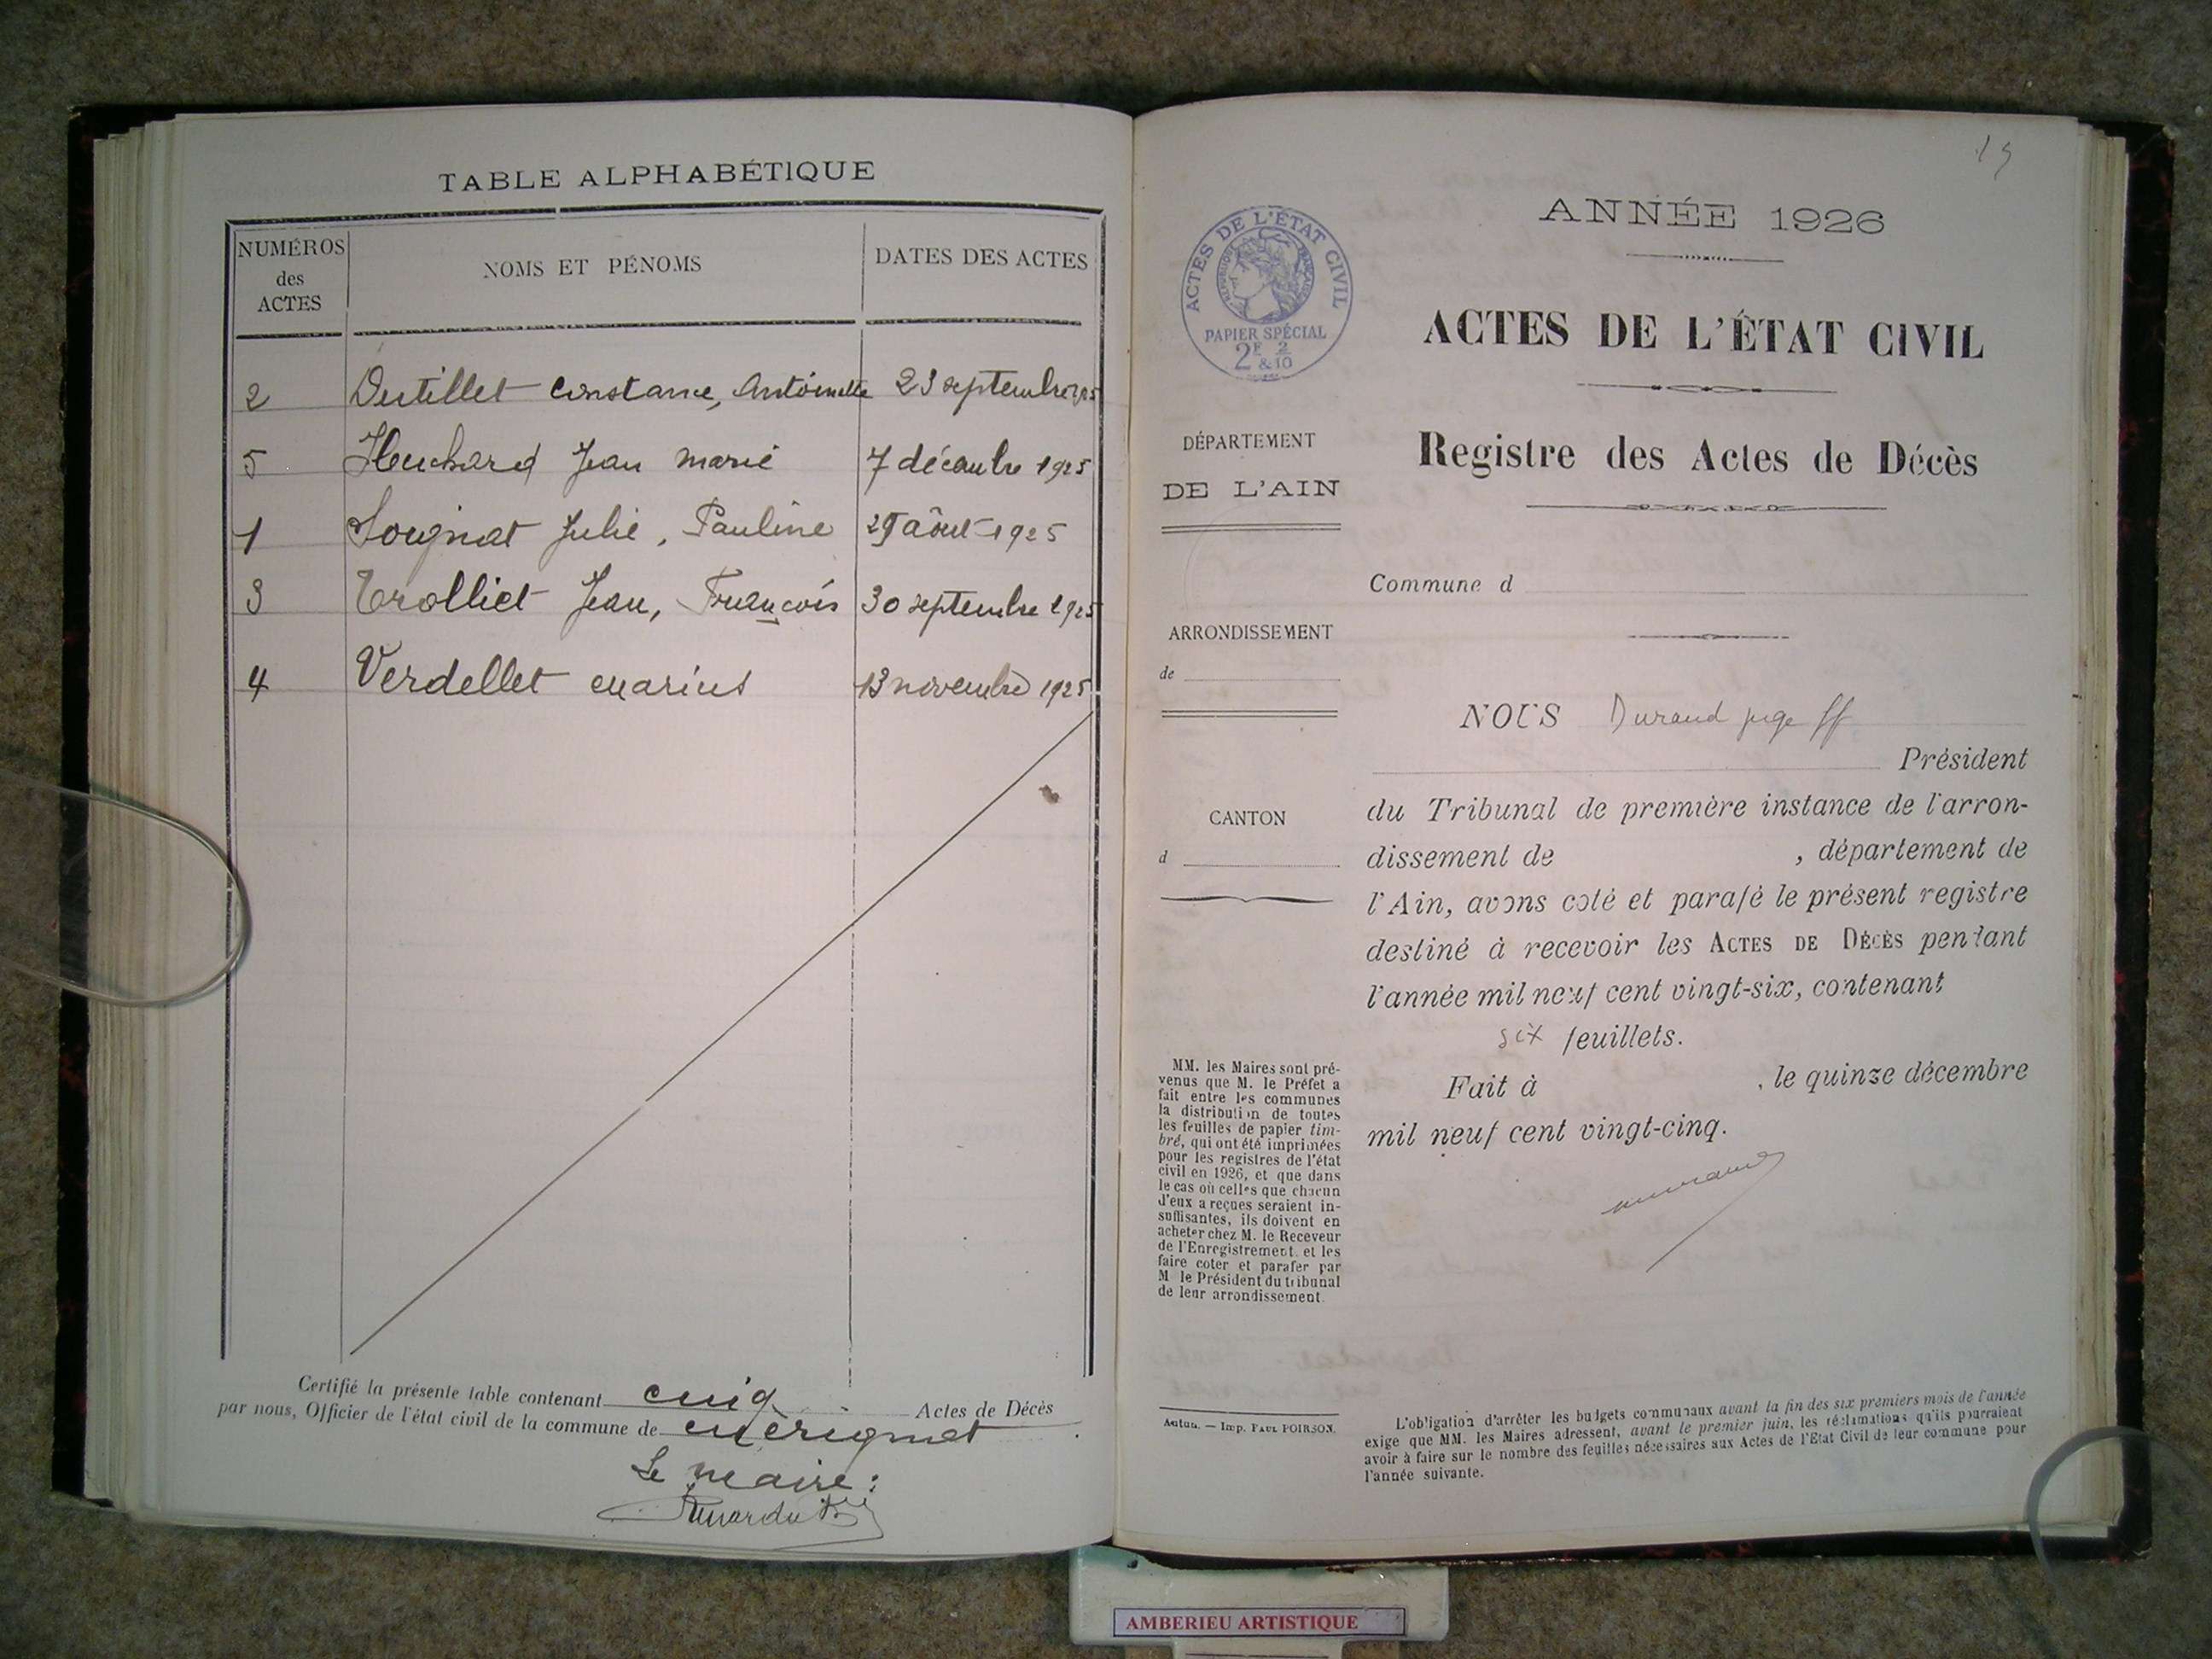 TABLE ALPHABÉTIQUE
NUMÉROS des ACTES
NOMS ET PÉNOMS
DATES DES ACTES
2 Dutillet Constance, Antoinette 23 septembre 1925
5 Huchard Jean Marie 7 décembre 1925
1 Sougnat Julie, Pauline 29 août 1925
3 Trolliet Jean, François 30 septembre 1925
4 Verdellet Marius 13 novembre 1925
Certifié la présente table contenant cinq Actes de Décès
par nous, Officier de l'état civil de la commune de Mérignat
Le Maire:
19
ANNÉE 1926
ACTES DE L'ÉTAT CIVIL
RÉPUBLIQUE FRANÇAISE
PAPIER SPÉCIAL
2F & 2/10
ACTES DE L'ÉTAT CIVIL
Registre des Actes de Décès
DÉPARTEMENT
DE L'AIN
Commune d
ARRONDISSEMENT
de
CANTON
d
NOUS Durand juge ff
Président
du Tribunal de première instance de l'arron-
dissement de , département de
l'Ain, avons coté et parafé le présent registre
destiné à recevoir les ACTES DE DÉCÈS pendant
l'année mil neuf cent vingt-six, contenant
six feuillets.
Fait à , le quinze décembre
mil neuf cent vingt-cinq.
MM. les Maires sont pré-
venus que M. le Préfet a
fait entre les communes
la distribution de toutes
les feuilles de papier tim-
bré, qui ont été imprimées
pour les registres de l'état
civil en 1926, et que dans
le cas où celles que chacun
d'eux a reçues seraient in-
suffisantes, ils doivent en
acheter chez M. le Receveur
de l'Enregistrement et les
faire coter et parafer par
M le Président du tribunal
de leur arrondissement.
Autun. — Imp. PAUL POIRSON.
L'obligation d'arrêter les budgets communaux avant la fin des six premiers mois de l'année
exige que MM. les Maires adressent, avant le premier juin, les réclamations qu'ils pourraient
avoir à faire sur le nombre des feuilles nécessaires aux Actes de l'Etat Civil de leur commune pour
l'année suivante.
AMBERIEU ARTISTIQUE